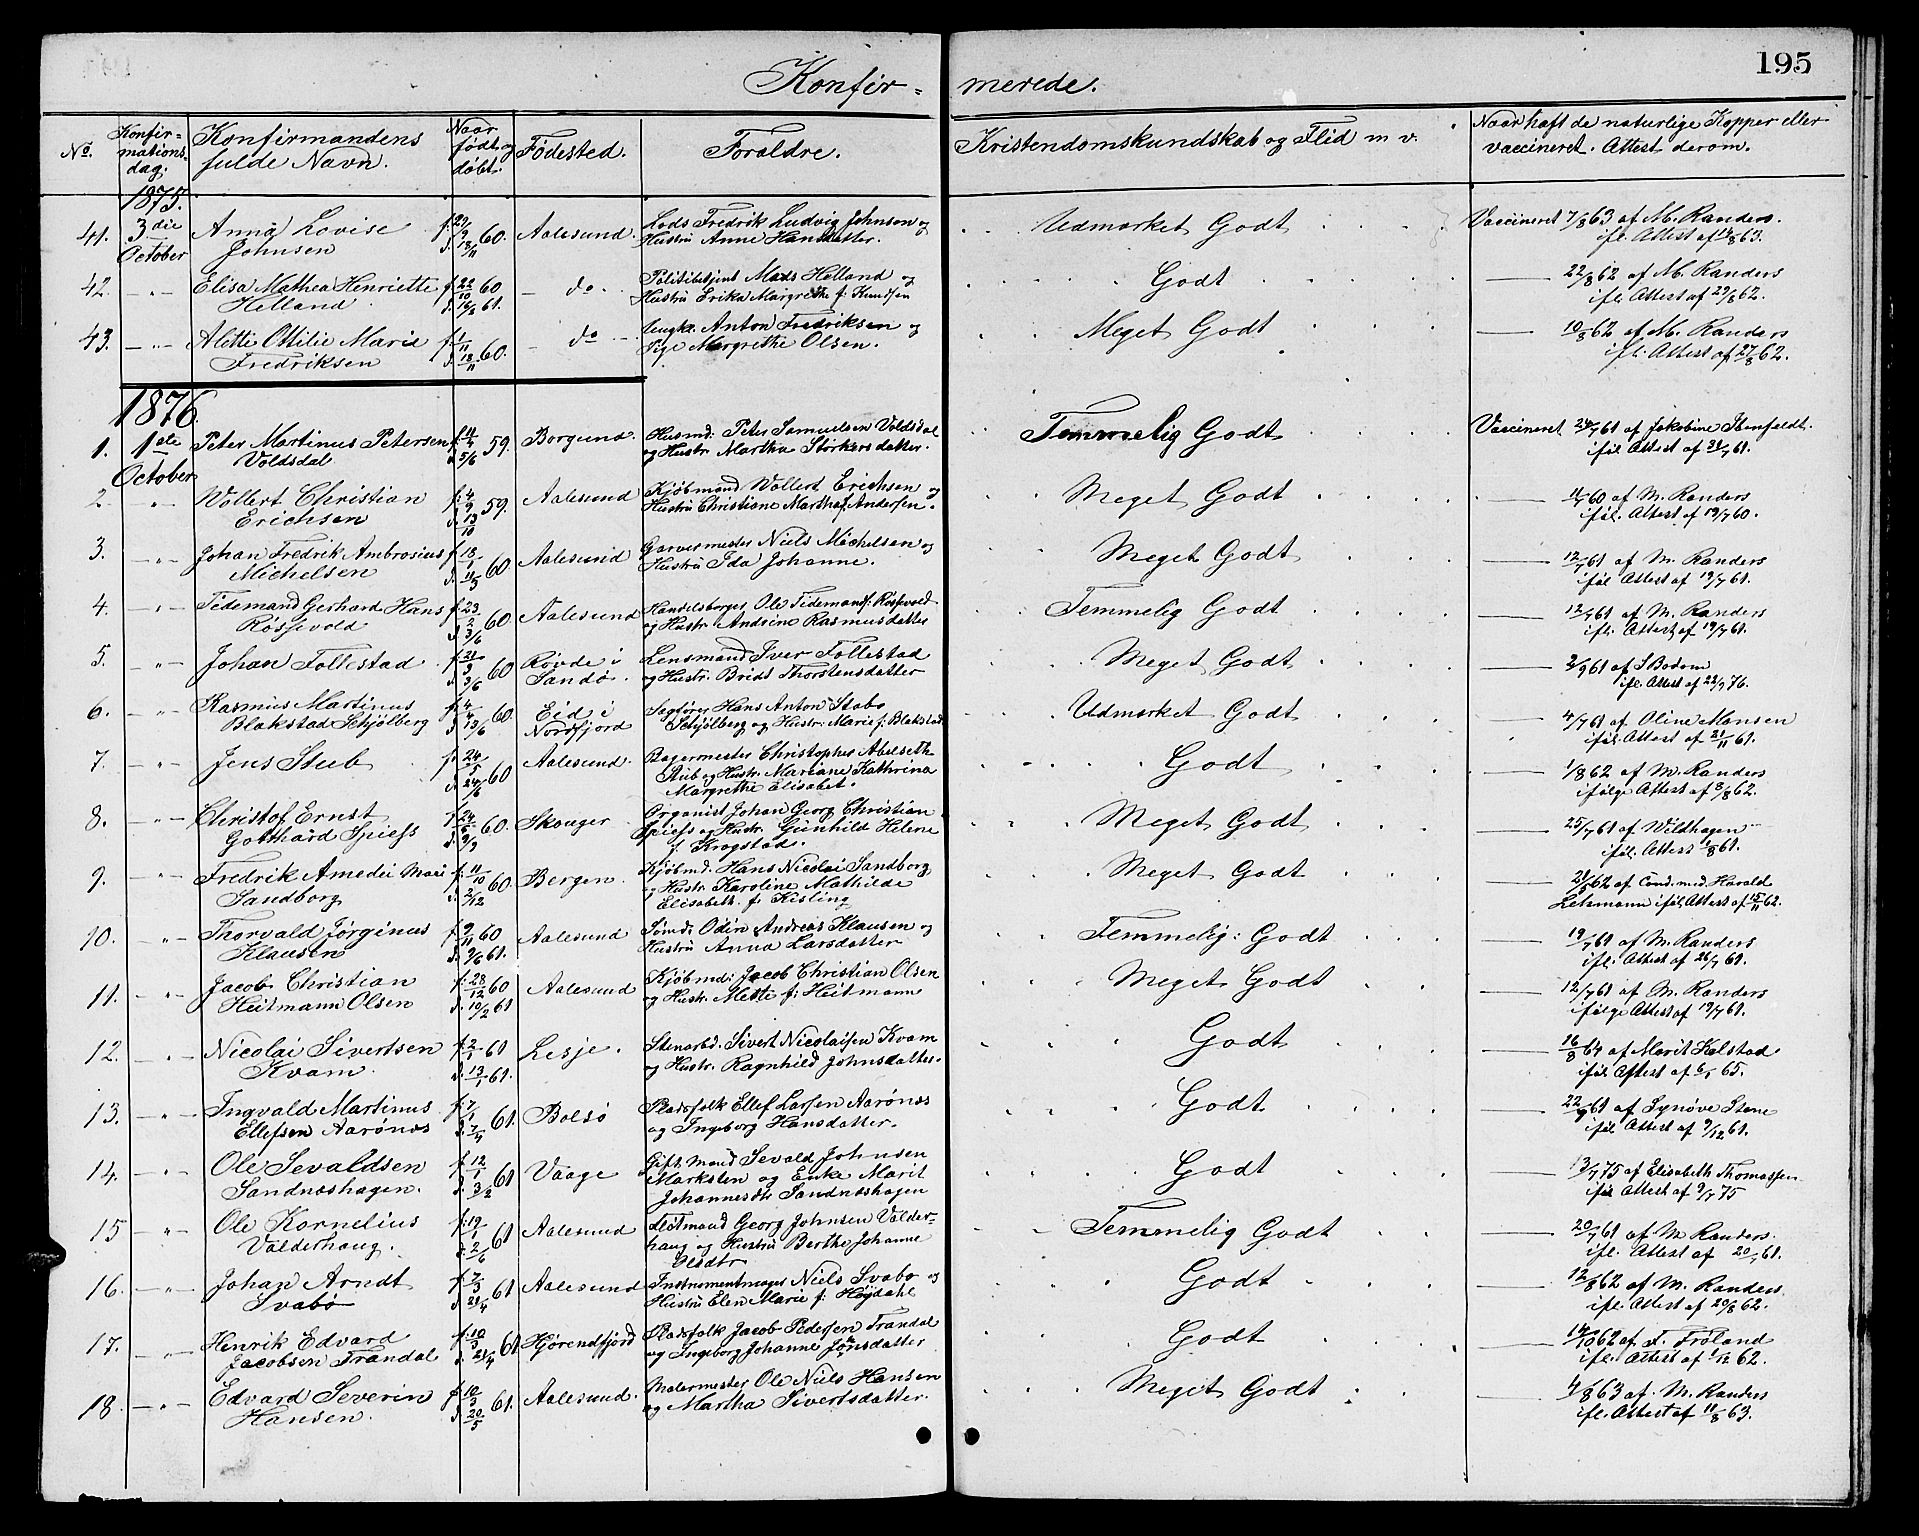 195
Konfir- merede.
No. Konfir-mations-dag. Konfirmandens fulde Navn. Naar født og døbt. Fødested. Forældre. Kristendomskundskab og Flid m v. Naar haft de naturlige Kopper eller vaccineret. Attest derom.
1875.
41. 3die October Anna Lovise Johnsen f. 29/9 d. 18/11 60. Aalesund. Lods Fredrik Ludvig Johnsen og Hustru Anne Hansdatter. Udmærket Godt Vaccineret 7/8 63 af M. Randers. ifl. Attest af 14/8 63.
42. -"- Elisa Mathea Henriette Helland f. 22/10 60 d. 16/3 61. do. Politibetjent Mads Helland og Hustru Erika Margrethe f. Knudsen Godt 22/8 62 af M. Randers ifl. Attest af 29/8 62.
43. -"- Alette Ottilie Marie Fredriksen f. 1/11 d. 18/11 60. do Ungkl. Anton Fredriksen og Pige Margrethe Olsen. Meget Godt 19/8 62 af M. Randers ifl. Attest af 27/8 62.
1876.
1. 1ste October Peter Martinus Petersen Voldsdal f. 11/4 d. 5/6 59. Borgund. Husmd. Peter Samuelsen Voldsdal og Hustr. Martha Storkersdatter. Temmelig Godt Vaccineret 24/7 61 af Jakobine Stenfeldt. iføl Attest af 31/7 61.
2. " Wollert Christian Erichsen f. 4/9 d. 13/10 59. Aalesund Kjøbmand Wollert Erichsen og Hustru Christiane Martha f. Andersen. Meget Godt 11/7 60 af M. Randers iføl. Attest af 19/7 60.
3. -"- Johan Fredrik Ambrosius Michelsen f. 18/1 d. 11/3 60 Aalesund Garvermester Niels Michelsen og Hustru Ida Johanne. Meget Godt 12/7 61 af M. Randers iføl Attest af 19/7 61.
4. -"- Tidemand Gerhard Hans Røssevold f. 23/2 d. 3/6 60 Aalesund Handelsborger Ole Tidemand Røssevold og Hustr. Andrine Rasmusdatter Temmelig Godt 12/7 61 af M. Randers ifl. Attest af 19/7 61.
5. -"- Johan Follestad 60 Røvde i Sandø. Lensmand Iver Follestad og Hustr. Brids Thorstensdatter Meget Godt 2/9 61 af S Bodom ifl. Attest af 22/9 76.
6. -"- Rasmus Martinus Blakstad Schjølberg f. 4/4 d. 13/6 60. Eid i Nordfjord Sagfører Hans Anton Stabo Schjølberg og Hustr. Marie f. Blakstad Udmærket Godt 4/7 61 af Oline Monsen iføl. Attest af 21/11 61.
7. -"- Jens Stub f. 24/5 d. 24/6 60 Aalesund. Bagermester Christopher Abelseth Stub og Hustr. Mariane Kathrina Margrethe Elisabet. Godt 1/8 62 af M. Randers ifølge Attest af 8/8 62.
8. -"- Christof Ernst Gotthard Spiess 60. Skouger Organist Johan Georg Christian Spiess og Hustr. Gunhild Helene f. Krogstad. Meget Godt 25/7 61 af Wildhagen iføl. Attest 1/8 61.
9. -"- Fredrik Amedei Mari Sandborg f. 11/10 d. 2/12 60. Bergen Kjøbmd. Hans Nicolai Sandborg og Hustr. Karoline Mathilde Elisabeth f. Kisling Meget Godt 21/5 62 af Cand. med. Harald iføl. Attest af 15/11 62.
10. -"- Thorvald Jørginus Klausen f. 9/11 60 d. 9/6 61. Aalesund Sømd. Odin Andreas Klausen og Hustru Anna Larsdatter Temmelig: Godt 19/7 61 af M. Randers ifl. Attest af 26/7 61.
11. -"- Jacob Christian Heitmann Olsen f. 28/12 60 d. 10/2 61 Aalesund Kjøbmd: Jacob Christian Olsen og Hustr. Mette f. Heitmann Meget Godt 12/7 61 af M. Randers ifølge Attest af 19/7 61.
12. -"- Nicolai Sivertsen Kvam f. 2/1 61 d. 13/1 61. Lesje. Stenarbd. Sivert Nicolaisen Kvam og Hustr. Ragnhild Johnsdatter. Godt 16/8 64 af Marit Kolstad iføl. Attest af 65.
13. -"- Ingvald Martinus Ellefsen Aarønæs f. 7/1 d. 7/4 61. Bolsø Pladsfolk Ellef Larsen Aarønæs og Ingeborg Hansdatter. Godt 22/9 61 af Synøve Stene iføl Attest af 9/12 61.
14. -"- Ole Sevaldsen Sandnæshagen. f. 12/1 d. 3/2 61 Vaage Gift Mand Sevald Johnsen Marksten og Enke Marit Johannesdtr Sandnæshagen Godt 13/7 75 af Elisabeth Thomassen iføl Attest af 9/7 75
15 -"- Ole Kornelius Valderhaug. f. 19/1 d. 2/6 61 Aalesund Georg Johnsen Valder-haug og Hustru Berthe Johanne Olsdtr Temmelig Godt 20/7 61 af M. Randers. ifl. Attest af 20/7 61.
16. -"- Johan Arndt Svabø f. 7/3 d. 21/4 61 Aalesund Instrumentmager Niels Svabo og Hustru Elen Marie f. Høydahl Godt 12/8 62 af M. Randers ifl. Attest af 20/8 62.
17. -"- Henrik Edvard Jacobsen Trandal f. 10/3 d. 21/4 61 Hjørendfjord Pladsfolk Jacob Pedersen Trandal og Ingeborg Johanne Jonsdatter Godt 14/10 62 af F. Frøland ifl. Attest af 1/12 62.
18. -"- Edvard Severin Hansen. f. 10/3 d. 20/5 61. Aalesund. Malermester Ole Niels Hansen og Martha Sivertsdatter. Meget Godt 4/8 63 af M. Randers ifl. Attest af 11/8 63.